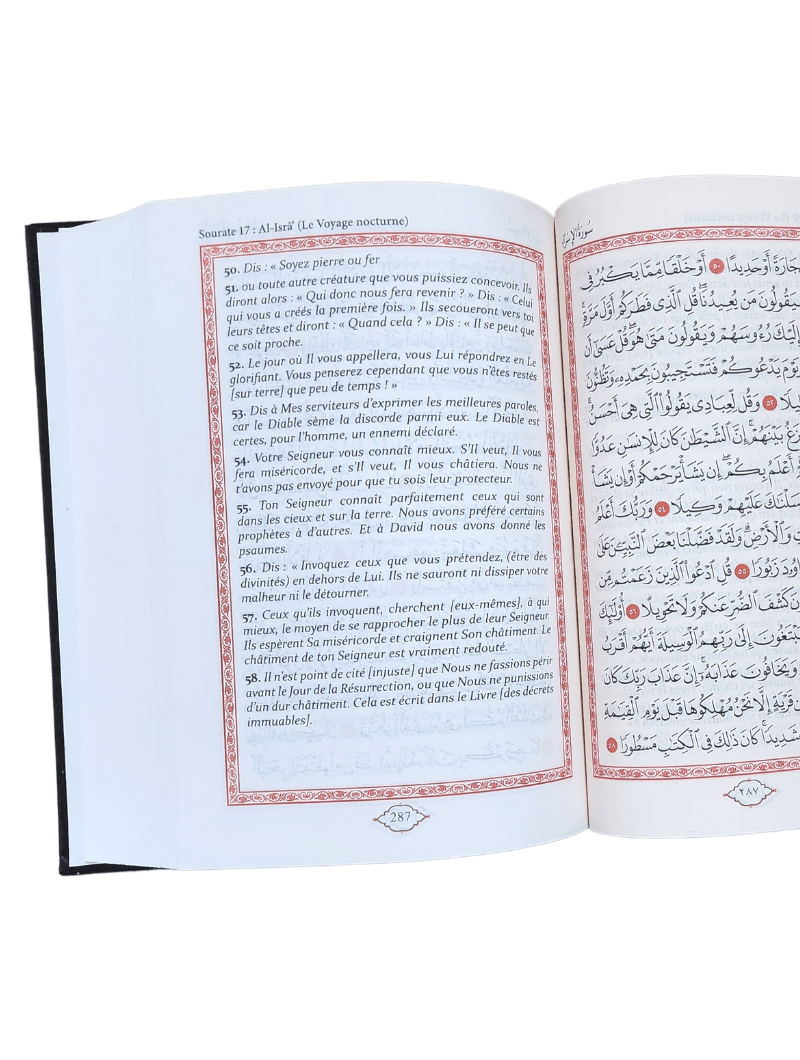 Sourate 17 : Al-Isrâ’ (Le Voyage nocturne)
50. Dis : « Soyez pierre ou fer
51. ou toute autre créature que vous puissiez concevoir. Ils
diront alors : « Qui donc nous fera revenir ? » Dis : « Celui
qui vous a créés la première fois. » Ils secoueront vers toi
leurs têtes et diront : « Quand cela ? » Dis : « Il se peut que
ce soit proche.
52. Le jour où Il vous appellera, vous Lui répondrez en Le
glorifiant. Vous penserez cependant que vous n'êtes restés
[sur terre] que peu de temps ! »
53. Dis à Mes serviteurs d'exprimer les meilleures paroles,
car le Diable sème la discorde parmi eux. Le Diable est
certes, pour l'homme, un ennemi déclaré.
54. Votre Seigneur vous connaît mieux. S'Il veut, Il vous
fera miséricorde, et s'Il veut, Il vous châtiera. Nous ne
t'avons pas envoyé pour que tu sois leur protecteur.
55. Ton Seigneur connaît parfaitement ceux qui sont
dans les cieux et sur la terre. Nous avons préféré certains
prophètes à d'autres. Et à David nous avons donné les
psaumes.
56. Dis : « Invoquez ceux que vous prétendez, (être des
divinités) en dehors de Lui. Ils ne sauront ni dissiper votre
malheur ni le détourner.
57. Ceux qu'ils invoquent, cherchent [eux-mêmes], à qui
mieux, le moyen de se rapprocher le plus de leur Seigneur.
Ils espèrent Sa miséricorde et craignent Son châtiment. Le
châtiment de ton Seigneur est vraiment redouté.
58. Il n'est point de cité [injuste] que Nous ne fassions périr
avant le Jour de la Résurrection, ou que Nous ne punissions
d'un dur châtiment. Cela est écrit dans le Livre [des décrets
immuables].
287
سُورَةُ الإِسْرَاءِ
جَارَةً أَوْ حَدِيدًا ٥٠ أَوْ خَلْقًا مِّمَّا يَكْبُرُ فِى
يَقُولُونَ مَن يُعِيدُنَا قُلِ ٱلَّذِى فَطَرَكُمْ أَوَّلَ مَرَّةٍ
إِلَيْكَ رُءُوسَهُمْ وَيَقُولُونَ مَتَىٰ هُوَ قُلْ عَسَىٰٓ أَن
يَوْمَ يَدْعُوكُمْ فَتَسْتَجِيبُونَ بِحَمْدِهِۦ وَتَظُنُّونَ
يلًا ٥٢ وَقُل لِّعِبَادِى يَقُولُوا۟ ٱلَّتِى هِىَ أَحْسَنُ
زَغُ بَيْنَهُمْ إِنَّ ٱلشَّيْطَٰنَ كَانَ لِلْإِنسَٰنِ عَدُوًّا
أَعْلَمُ بِكُمْ إِن يَشَأْ يَرْحَمْكُمْ أَوْ إِن يَشَأْ
سَلْنَٰكَ عَلَيْهِمْ وَكِيلًا ٥٤ وَرَبُّكَ أَعْلَمُ
تِ وَٱلْأَرْضِ وَلَقَدْ فَضَّلْنَا بَعْضَ ٱلنَّبِيِّۦنَ عَلَىٰ
اوُۥدَ زَبُورًا ٥٥ قُلِ ٱدْعُوا۟ ٱلَّذِينَ زَعَمْتُم مِّن
نَ كَشْفَ ٱلضُّرِّ عَنكُمْ وَلَا تَحْوِيلًا ٥٦ أُو۟لَٰٓئِكَ
بْتَغُونَ إِلَىٰ رَبِّهِمُ ٱلْوَسِيلَةَ أَيُّهُمْ أَقْرَبُ
وَيَخَافُونَ عَذَابَهُۥٓ إِنَّ عَذَابَ رَبِّكَ كَانَ
ن قَرْيَةٍ إِلَّا نَحْنُ مُهْلِكُوهَا قَبْلَ يَوْمِ ٱلْقِيَٰمَةِ
شَدِيدًا كَانَ ذَٰلِكَ فِى ٱلْكِتَٰبِ مَسْطُورًا ٥٨
٢٨٧